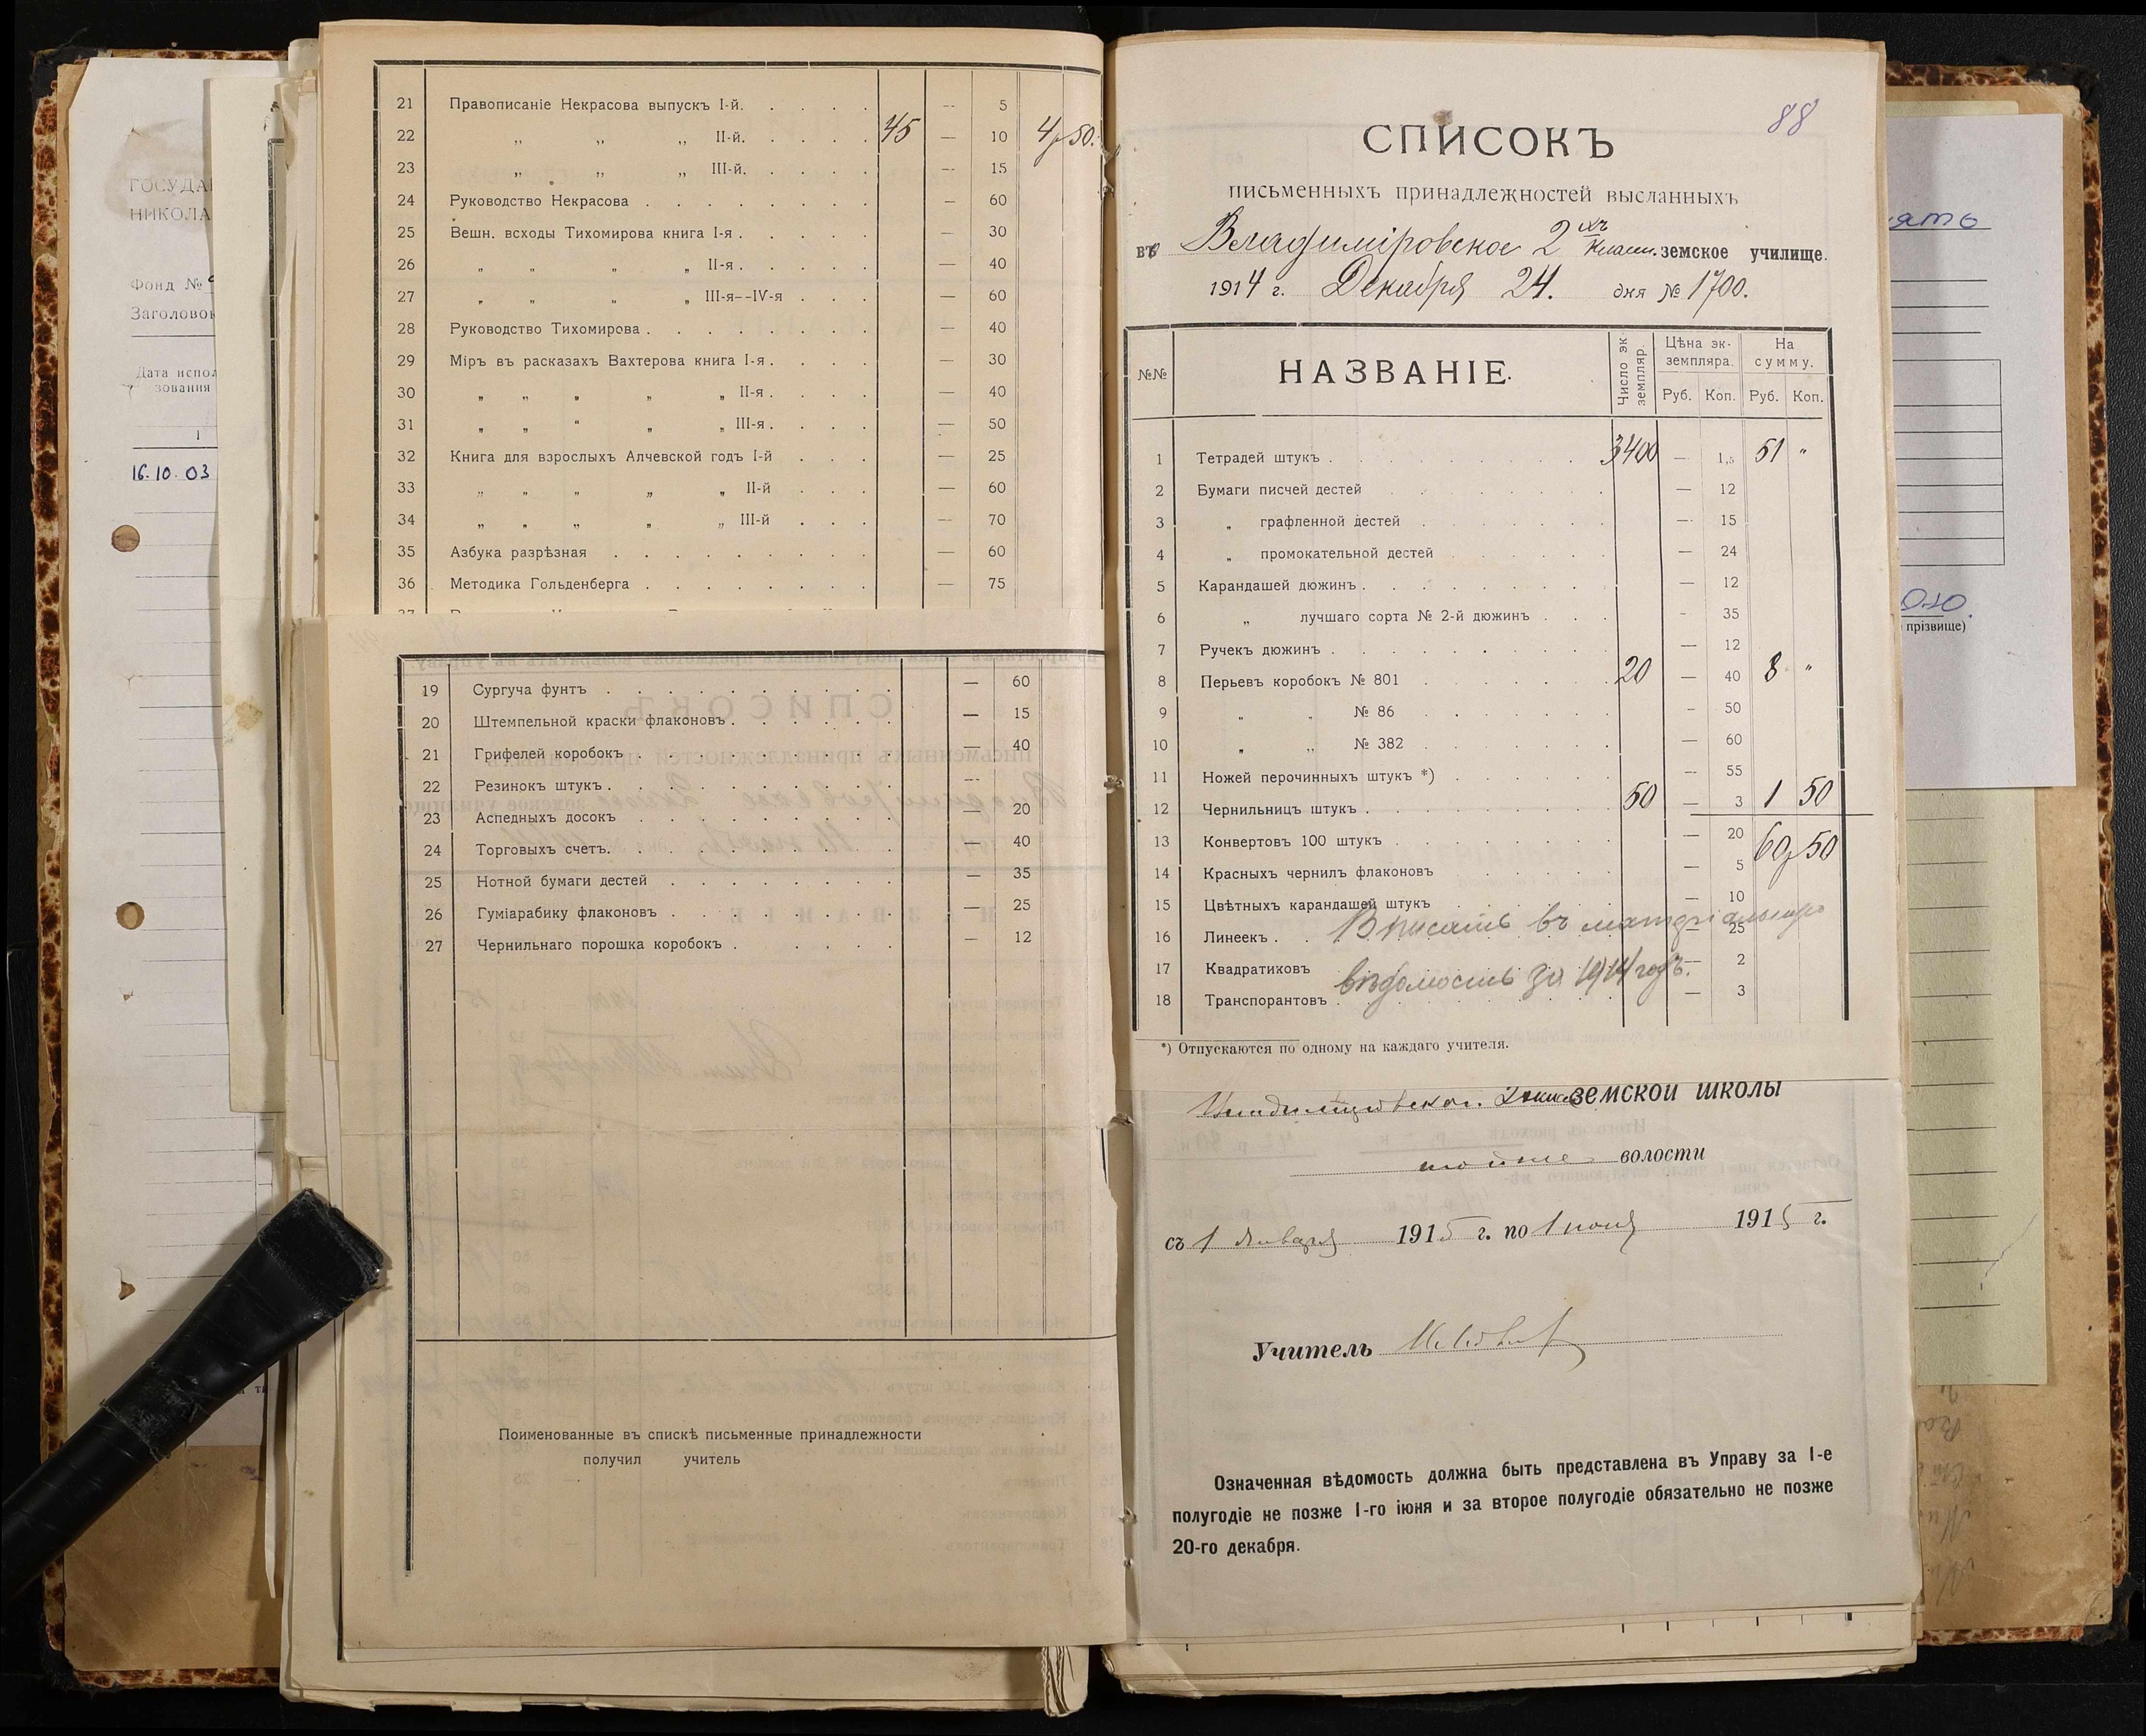 21 Правописаніе Некрасова выпускъ I-й. — 5
22 „ „ „ II-й. 45 — 10 4 р 50.
23 „ „ „ III-й. — 15
24 Руководство Некрасова — 60
25 Вешн. всходы Тихомирова книга I-я. — 30
26 „ „ „ „ II-я. — 40
27 „ „ „ „ III-я--IV-я — 60
28 Руководство Тихомирова. — 40
29 Міръ въ расказахъ Вахтерова книга I-я. — 30
30 „ „ „ „ „ II-я. — 40
31 „ „ „ „ „ III-я. — 50
32 Книга для взрослыхъ Алчевской годъ I-й — 25
33 „ „ „ „ „ II-й — 60
34 „ „ „ „ „ III-й — 70
35 Азбука разрѣзная — 60
36 Методика Гольденберга — 75
19 Сургуча фунтъ — 60
20 Штемпельной краски флаконовъ. — 15
21 Грифелей коробокъ — 40
22 Резинокъ штукъ. —
23 Аспедныхъ досокъ — 20
24 Торговыхъ счетъ. — 40
25 Нотной бумаги дестей — 35
26 Гуміарабику флаконовъ — 25
27 Чернильнаго порошка коробокъ — 12
Поименованные въ спискѣ письменные принадлежности
получил учитель
88
СПИСОКЪ
письменныхъ принадлежностей высланныхъ
въ Владиміровское 2 хъ класн. земское училище.
1914 г. Декабря 24. дня № 1700.
№№ НАЗВАНІЕ. Число экземпляр. Цѣна экземпляра. На сумму.
Руб. Коп. Руб. Коп.
1 Тетрадей штукъ 3400 — 1,5 51 "
2 Бумаги писчей дестей — 12
3 „ графленной дестей — 15
4 „ промокательной дестей — 24
5 Карандашей дюжинъ — 12
6 „ лучшаго сорта № 2-й дюжинъ — 35
7 Ручекъ дюжинъ — 12
8 Перьевъ коробокъ № 801 20 — 40 8 "
9 „ „ № 86 — 50
10 „ „ № 382 — 60
11 Ножей перочинныхъ штукъ *) — 55
12 Чернильницъ штукъ 50 — 3 1 50
13 Конвертовъ 100 штукъ — 20 60 р 50
14 Красныхъ чернилъ флаконовъ — 5
15 Цвѣтныхъ карандашей штукъ — 10
16 Линеекъ — 25
17 Квадратиковъ — 2
18 Транспорантовъ — 3
Вписать въ матеріальную
вѣдомость за 1914 годъ.
*) Отпускаются по одному на каждаго учителя.
земской школы
волости
съ 1 января 1915 г. по 1 июня 1915 г.
Учитель
Означенная вѣдомость должна быть представлена въ Управу за I-е
полугодіе не позже I-го іюня и за второе полугодіе обязательно не позже
20-го декабря.
ГОСУДА
НИКОЛА
Фонд №
Заголовок
Дата испол
зования
1
16.10.03
прізвище)